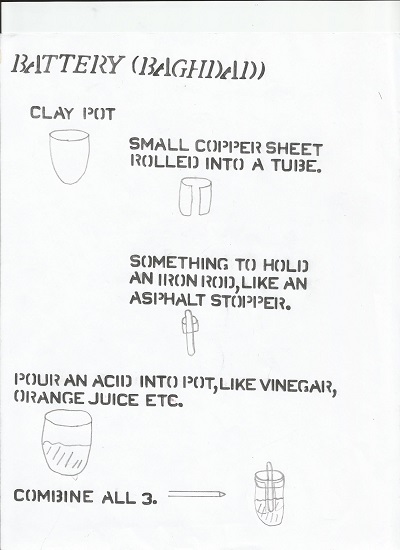 BATTERY (BAGHDAD)
CLAY POT
SMALL COPPER SHEET
ROLLED INTO A TUBE.
SOMETHING TO HOLD
AN IRON ROD, LIKE AN
ASPHALT STOPPER.
POUR AN ACID INTO POT, LIKE VINEGAR,
ORANGE JUICE ETC.
COMBINE ALL 3.